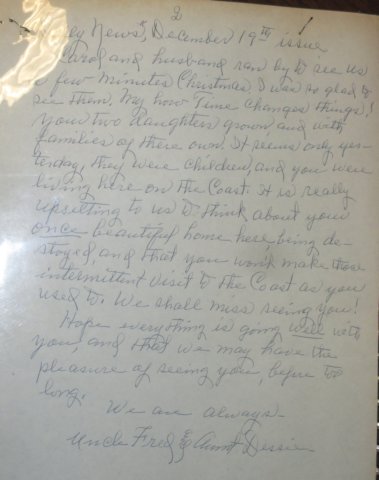 2
ey News", December 19th issue
Carol and husband ran by to see us
a few minutes Christmas. I was so glad to
see them. My how time changes things!
your two daughters grown and with
families of there own. It seems only yes-
terday, they were children, and you were
living here on the Coast. It is really
upsetting to us to think about your
once beautiful home here being de-
stoyed, and that you won't make those
intermittent visit to the Coast as you
used to. We shall miss seeing you!
Hope everything is going well with
you, and that we may have the
pleasure of seeing you, before too
long.
We are always-
Uncle Fred & Aunt Dessie